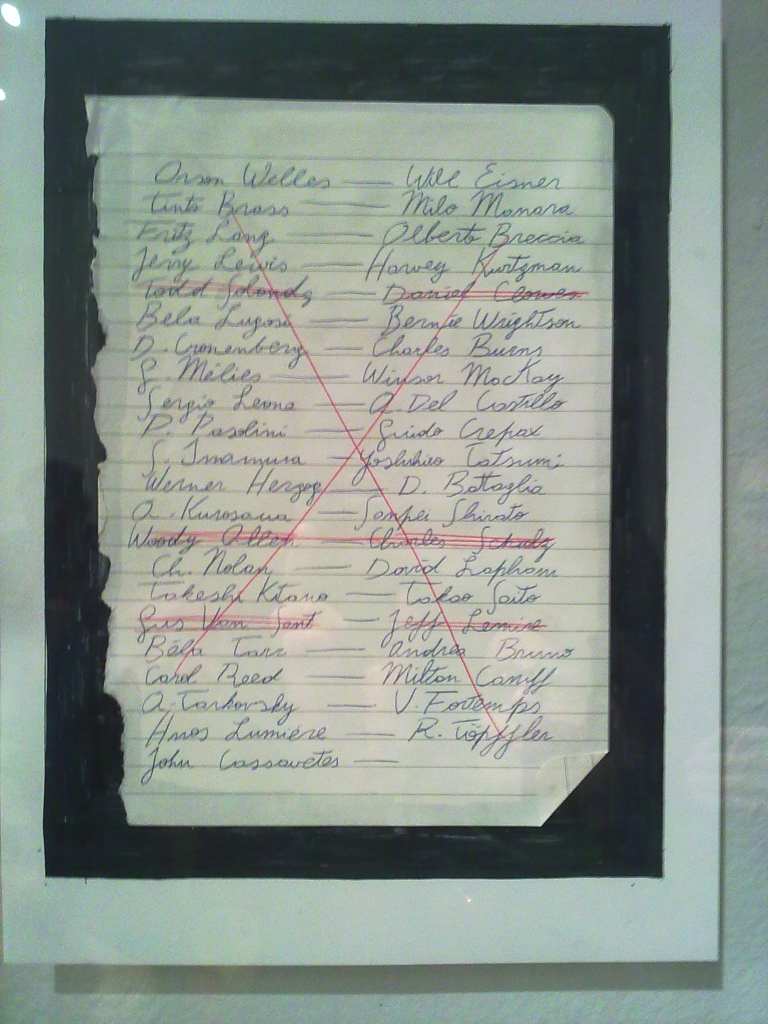 Orson Welles — Will Eisner
Tinto Brass — Milo Manara
Fritz Lang — Alberto Breccia
Jerry Lewis — Harvey Kurtzman
Todd Solondz — Daniel Clowes
Bela Lugosi — Bernie Wrightson
D. Cronenberg — Charles Burns
G. Mélies — Winsor MacKay
Sergio Leone — A. Del Castillo
P. Pasolini — Guido Crepax
S. Imamura — Yoshihiro Tatsumi
Werner Herzog — D. Battaglia
A. Kurosawa — Sanpei Shirato
Woody Allen — Charles Schulz
Ch. Nolan — David Lapham
Takeshi Kitano — Takao Saito
Gus Van Sant — Jeff Lemire
Béla Tarr — Andrea Bruno
Carol Reed — Milton Caniff
A. Tarkovsky — V. Fortemps
Hnos Lumiere — R. Töpffler
John Cassavetes —